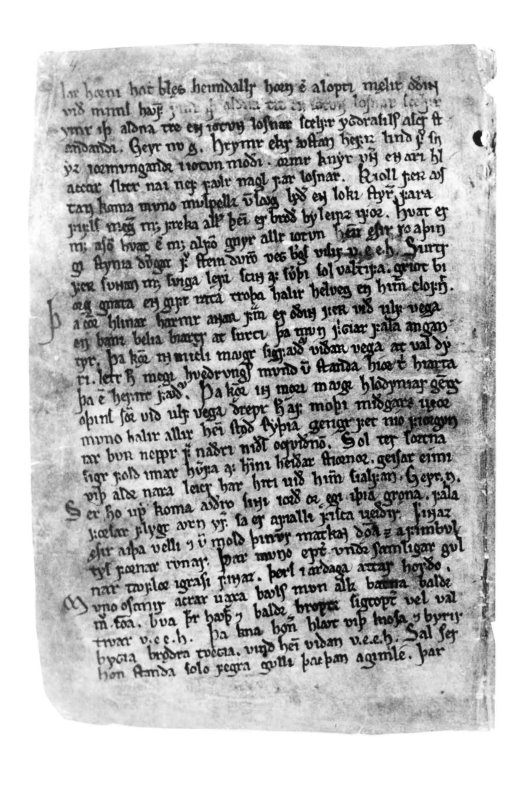 lar horni hat bles heimdallr horn e alopti melir odin
við mims havf
ymr iþ aldna tre en iotvn losnar scelfr ygdrasils ascr st
andandi. Geyr nv g. Hrymr ekr avstan hefiz lind f sn
yz iormvngandr iotvn modi. ormr knyr vn en ari hl
accar slitr nai nef favlr nagl far losnar. Kioll fer avs
tan koma mvno mvspellz v lavg lyd en loki styr fara
fifls meg m freka all þei er brod byleipz ifor. Hvat er
m asō hvat e m alfō gnyr allr iotvn heimr esir ro aþin
gi stynia dvergar f stein dvrō veg berg visir v. e. e. h. Surtr
fer sunan m sviga lefi scin af sverþi sol valtifa. griot bi
org gnata en gifr rata troþa halir helveg en himin clofn.
Þa cōr hlinar harmr anar fram er odin ferr vid ulf vega
en bani belia biartr at surti þa mvn friciar falla angan
tyr. Þa kōr in micli mavgr sigfavdur vidar vega at val dy
ri. letr megi hvedrvngs mvnd v standa hior t hiarta
þa e hefnt favdur. Þa kōr in mori mavgr hlodyniar gengr
oþins son vid ulf vega drepr h af moþi midgarz veor
mvno halir allir heim stod ryþia gengr fet nio fiorgyn
iar bvr neppr f nadri nids oqvidnō. Sol ter sortna
sigr fold imar hverfa af himni heidar stiornor. geisar eimi
viþ aldr nara leicr har hiti vid himin sialfan. Geyr. n.
Ser ho up koma aðro sini iord or egi iþia grona. falla
forsar flygr avrn yf sa er afialli fisca veidir. Finaz
esir aiþa velli v mold þinvr matkan doma afimbvl
tys fornar rvnar. Þar mvno ept vndr samligar gvl
nar tavflor igrasi finaz. þers i ardaga attar hofdo.
Mvno osanir acrar vaxa bavls mvn allz batna baldr
m coa. bva þr havþr baldr hroptz sigtopt vel val
tivar v. e. e. h. Þa kna honir hlavt viþ kiosa byrir
bycia brodra tvecia. vind hei vidan v. e. e. h. Sal ser
hon standa solo fegra gulli þacþan agimle. þar